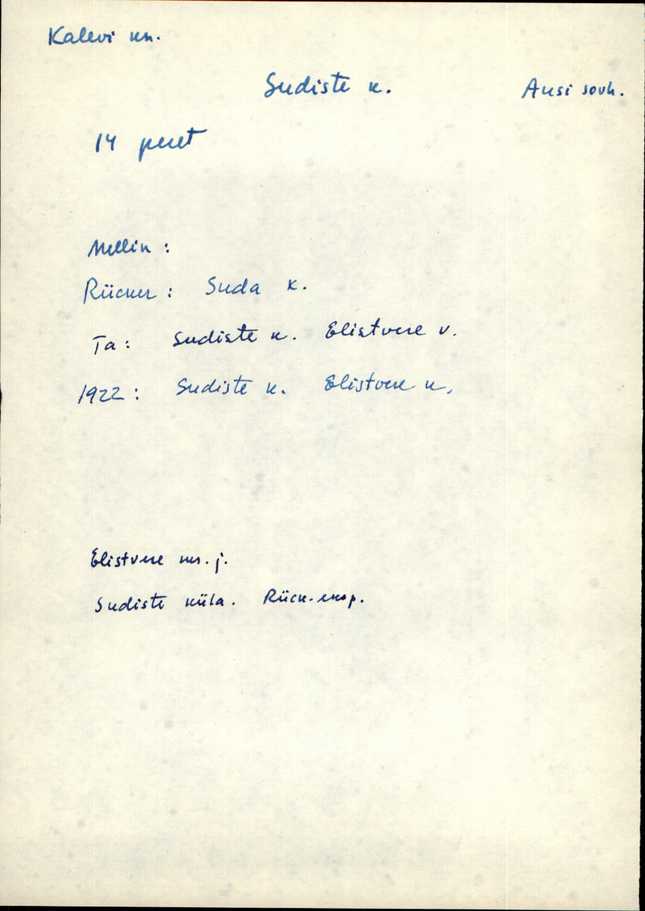 Kalevi kn.
Sudiste k. Ausi sovh.
14 peret
Mellin :
Rücker : Suda k.
Ta : Sudiste k. Elistvere v.
1922 : Sudiste k. Elistvere k.
Elistvere mr. j.
Sudiste küla. Rück.-eksp.